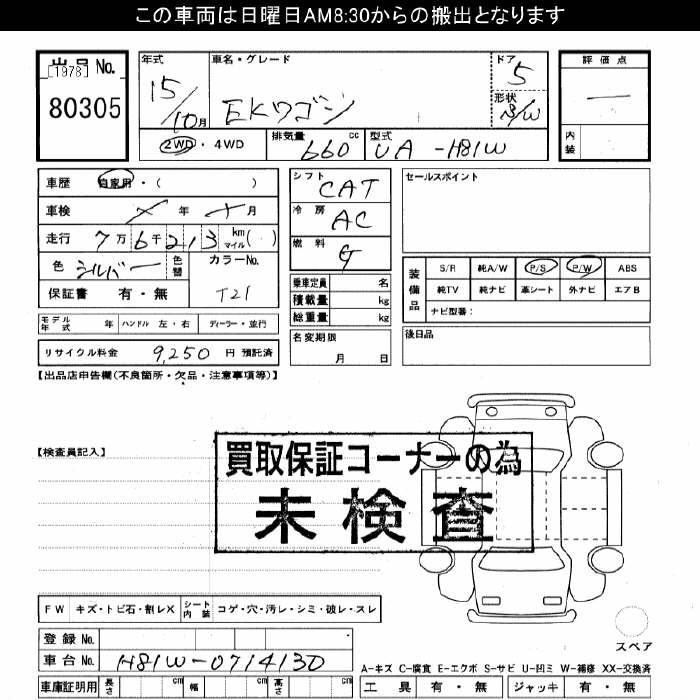 この車両は日曜日AM8:30からの搬出となります
出品 No.
[1978]
80305
年式 車名・グレード ドア 評価点
15/10月 EKワゴン 5 —
形状 S/W
2WD・4WD 排気量 660 cc 型式 UA-H81W 内装
車歴 自家用・( )
シフト CAT セールスポイント
車検 年 月
冷房 AC
走行 7万6千213 km マイル( )
燃料 G
色 シルバー 色替 カラーNo. T21
保証書 有・無
乗車定員 名
積載量 kg
総重量 kg
装備品 S/R 純A/W P/S P/W ABS
純TV 純ナビ 革シート 外ナビ エアB
ナビ型番:
モデル年式 年 ハンドル 左・右 ディーラー・並行
名変期限 月 日
後日品
リサイクル料金 9,250 円 預託済
【出品店申告欄(不良箇所・欠品・注意事項等)】
【検査員記入】
買取保証コーナーの為
未検査
FW キズ・トビ石・割レX シート内装 コゲ・穴・汚レ・シミ・破レ・スレ
スペア
登録 No.
車台 No. H81W-0714130
A-キズ C-腐食 E-エクボ S-サビ U-凹ミ W-補修 XX-交換済
車庫証明用 長さ cm 幅 cm 高さ cm 工具 有・無 ジャッキ 有・無